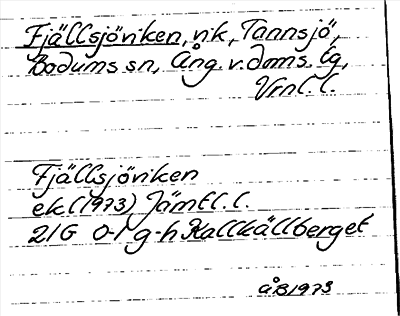 Fjällsjöviken, vik, Tannsjö,
Bodums sn, Ång. v. doms. lg,
Vrnl. l.
Fjällsjöviken
ek (1973) Jämtl. l.
21G 0-1 g-h Kallkällberget
ÅB 1973